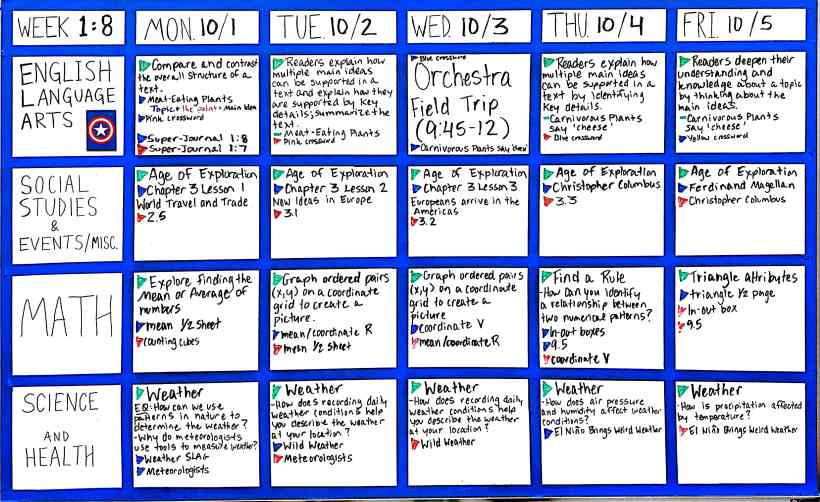 WEEK 1:8
MON. 10/1
TUE. 10/2
WED. 10/3
THU. 10/4
FRI. 10/5
ENGLISH
LANGUAGE
ARTS
Compare and contrast
the overall structure of a
text.
Meat-Eating Plants
Topic + the point = Main Idea
Pink crossword
Super-Journal 1:8
Super-Journal 1:7
Readers explain how
multiple main ideas
can be supported in a
text and explain how they
are supported by key
details; summarize the
text.
Meat-Eating Plants
Pink crossword
Blue crossword
Orchestra
Field Trip
(9:45-12)
Carnivorous Plants say 'cheese'
Readers explain how
multiple main ideas
can be supported in a
text by identifying
key details.
-Carnivorous Plants
say 'cheese'
Blue crossword
Readers deepen their
understanding and
knowledge about a topic
by thinking about the
main ideas.
-Carnivorous Plants
say 'cheese'
Yellow crossword
SOCIAL
STUDIES
&
EVENTS/MISC.
Age of Exploration
Chapter 3 Lesson 1
World Travel and Trade
2.5
Age of Exploration
Chapter 3 Lesson 2
New Ideas in Europe
3.1
Age of Exploration
Chapter 3 Lesson 3
Europeans arrive in the
Americas
3.2
Age of Exploration
Christopher Columbus
3.3
Age of Exploration
Ferdinand Magellan
Christopher Columbus
MATH
Explore finding the
Mean or Average of
numbers
mean 1/2 sheet
counting cubes
Graph ordered pairs
(x,y) on a coordinate
grid to create a
picture.
mean/coordinate R
mean 1/2 sheet
Graph ordered pairs
(x,y) on a coordinate
grid to create a
picture
coordinate V
mean/coordinate R
Find a Rule
-How can you identify
a relationship between
two numerical patterns?
In-out boxes
9.5
coordinate V
Triangle Attributes
triangle 1/2 page
In-out box
9.5
SCIENCE
AND
HEALTH
Weather
EQ: How can we use
patterns in nature to
determine the weather?
-Why do meteorologists
use tools to measure weather?
Weather SLAG
Meteorologists
Weather
-How does recording daily
weather conditions help
you describe the weather
at your location?
Wild Weather
Meteorologists
Weather
-How does recording daily
weather conditions help
you describe the weather
at your location?
Wild Weather
Weather
-How does air pressure
and humidity affect weather
conditions?
El Niño Brings Weird Weather
Weather
-How is precipitation affected
by temperature?
El Niño Brings Weird Weather